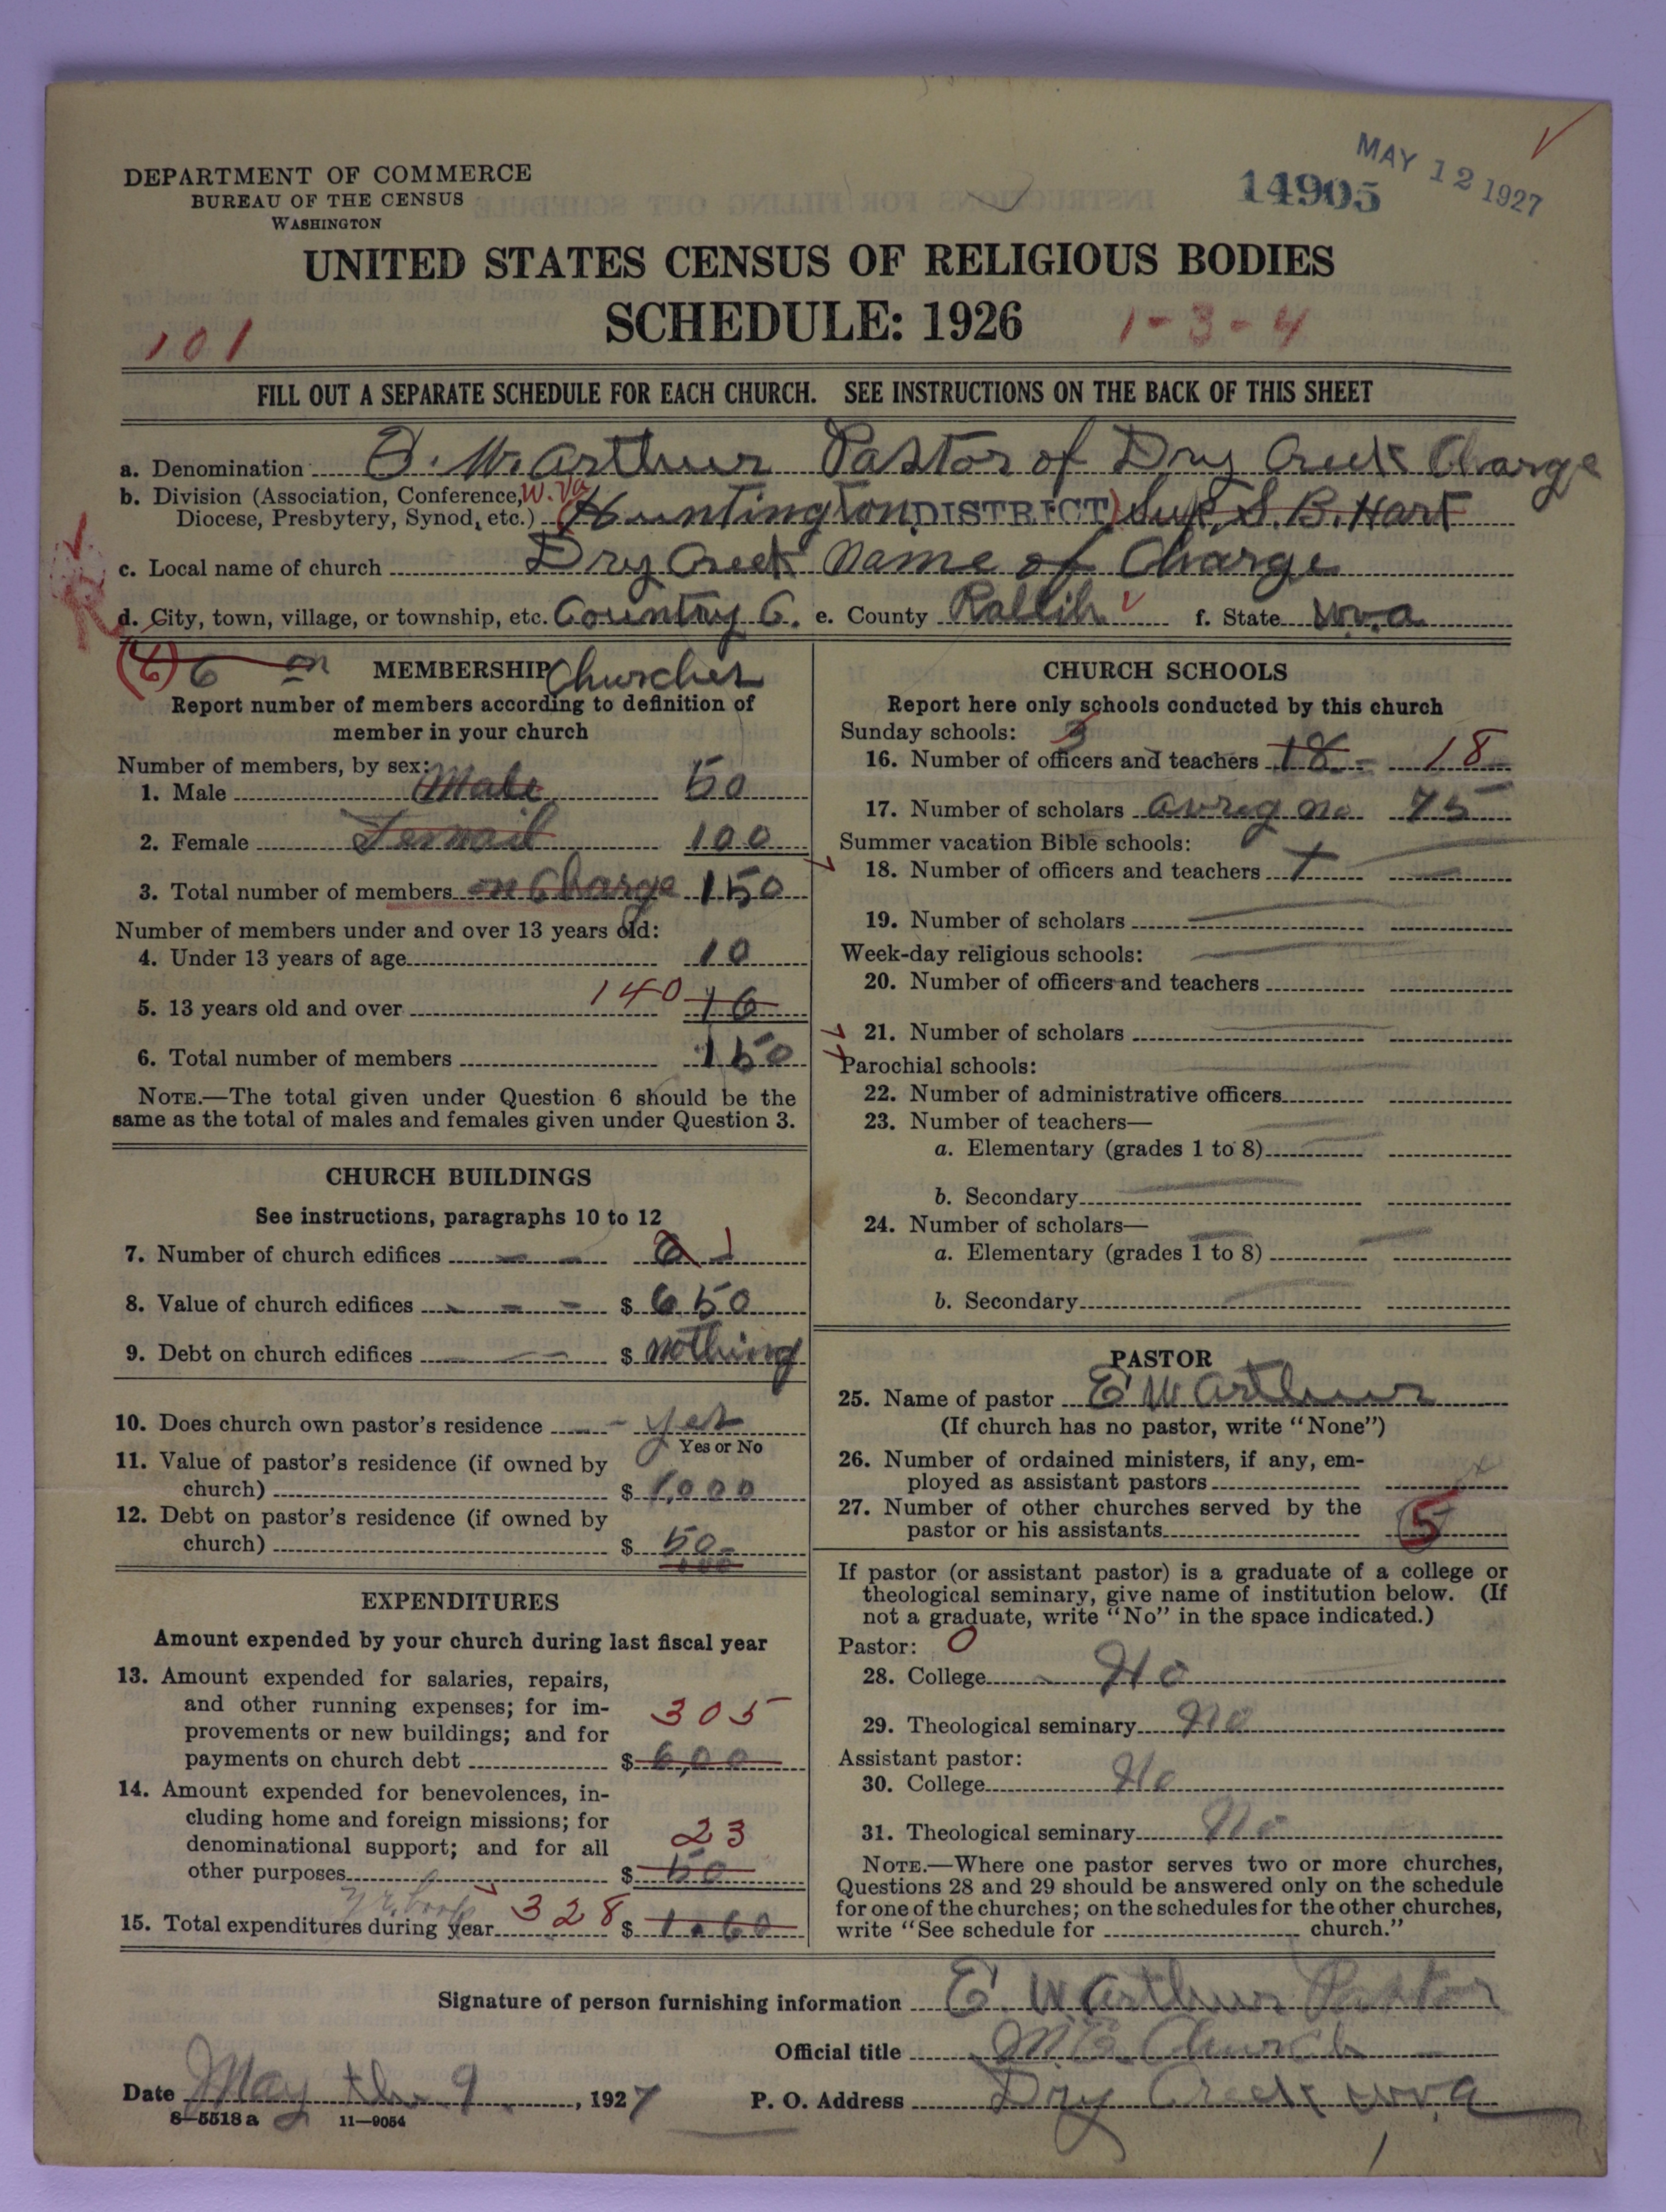 MAY 12 1927
14905
DEPARTMENT OF COMMERCE
BUREAU OF THE CENSUS
WASHINGTON
UNITED STATES CENSUS OF RELIGIOUS BODIES
SCHEDULE: 1926
101
1-3-4
FILL OUT A SEPARATE SCHEDULE FOR EACH CHURCH. SEE INSTRUCTIONS ON THE BACK OF THIS SHEET
a. Denomination E. W. Arthur Pastor of Dry Creek Charge
b. Division (Association, Conference, W. Va
Diocese, Presbytery, Synod, etc.) (Huntington DISTRICT) Sup. S. B. Hart
c. Local name of church Dry Creek Name of Charge
d. City, town, village, or township, etc. Country C. e. County Rallih f. State W.va
(6) 6 on MEMBERSHIP Churches
Report number of members according to definition of
member in your church
Number of members, by sex:
1. Male Male 50
2. Female Femail 100
3. Total number of members on Charge 150
Number of members under and over 13 years old:
4. Under 13 years of age 10
5. 13 years old and over 140 16
6. Total number of members 150
NOTE.—The total given under Question 6 should be the
same as the total of males and females given under Question 3.
CHURCH BUILDINGS
See instructions, paragraphs 10 to 12
7. Number of church edifices 1
8. Value of church edifices $ 650
9. Debt on church edifices $ nothing
10. Does church own pastor's residence yes
Yes or No
11. Value of pastor's residence (if owned by
church) $ 1,000
12. Debt on pastor's residence (if owned by
church) $ 50
EXPENDITURES
Amount expended by your church during last fiscal year
13. Amount expended for salaries, repairs,
and other running expenses; for im-
provements or new buildings; and for
payments on church debt 305 $ 6,00
14. Amount expended for benevolences, in-
cluding home and foreign missions; for
denominational support; and for all
other purposes 23 $ 50
15. Total expenditures during year 328 $
CHURCH SCHOOLS
Report here only schools conducted by this church
Sunday schools: 3
16. Number of officers and teachers 18 18
17. Number of scholars avreg no 75
Summer vacation Bible schools:
18. Number of officers and teachers
19. Number of scholars
Week-day religious schools:
20. Number of officers and teachers
21. Number of scholars
Parochial schools:
22. Number of administrative officers
23. Number of teachers—
a. Elementary (grades 1 to 8)
b. Secondary
24. Number of scholars—
a. Elementary (grades 1 to 8)
b. Secondary
PASTOR
25. Name of pastor E W Arthur
(If church has no pastor, write "None")
26. Number of ordained ministers, if any, em-
ployed as assistant pastors x
27. Number of other churches served by the
pastor or his assistants 5
If pastor (or assistant pastor) is a graduate of a college or
theological seminary, give name of institution below. (If
not a graduate, write "No" in the space indicated.)
Pastor: 0
28. College No
29. Theological seminary no
Assistant pastor:
30. College No
31. Theological seminary No
NOTE.—Where one pastor serves two or more churches,
Questions 28 and 29 should be answered only on the schedule
for one of the churches; on the schedules for the other churches,
write "See schedule for church."
Signature of person furnishing information E. W Arthur Pastor
Official title M.E. Church
Date May the 9, 1927 P. O. Address Dry Creek W.va
8—5518 a 11—9054